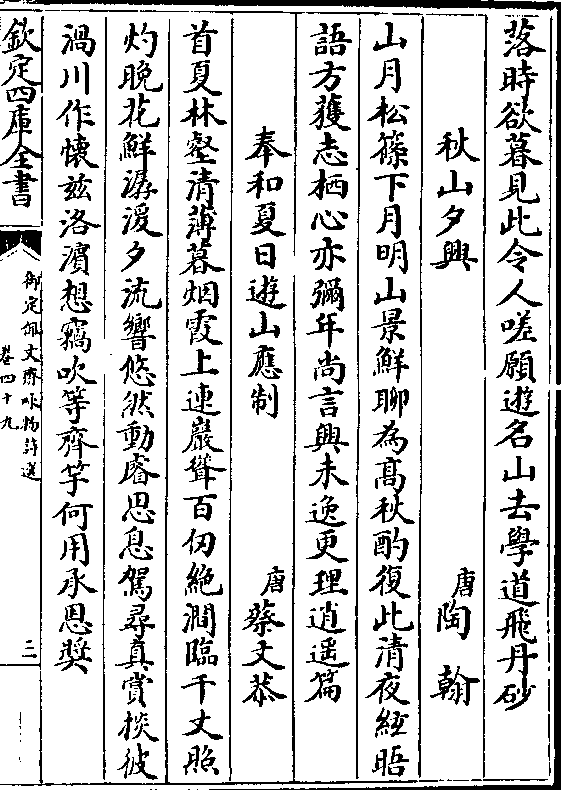 落時欲暮見此令人嗟願遊名山去學道飛丹砂
秋山夕興　唐陶翰
山月松篠下月明山景鮮聊為高秋酌復此清夜絃晤
語方獲志栖心亦彌年尚言興未逸更理逍遥篇
奉和夏日遊山應制　唐蔡文恭
首夏林壑清薄暮烟霞上連巖聳百仞絶澗臨千丈照
灼晚花鮮潺湲夕流響悠然動睿思息駕尋真賞掞彼
渦川作懐兹洛濵想竊吹等齊竽何用承恩奬
欽定四庫全書
御定佩文齋咏物詩選
卷四十九
三